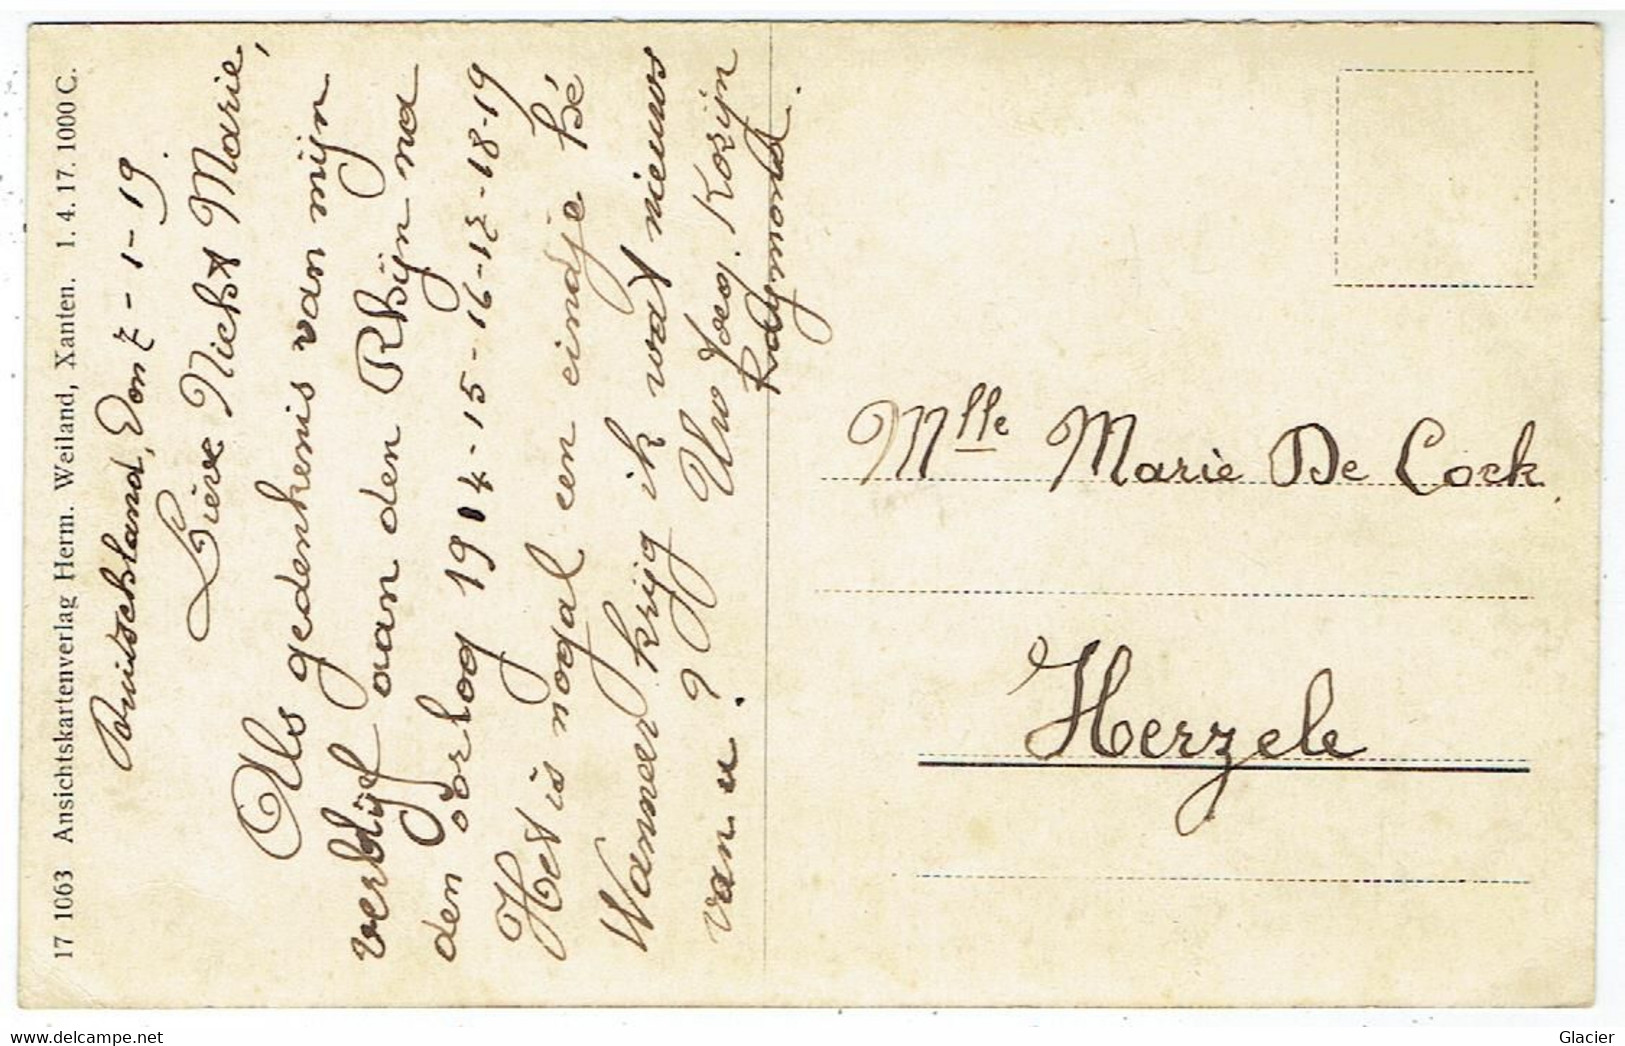 17 1063 Ansichtskartenverlag Herm. Weiland, Xanten. 1. 4. 17. 1000 C.
Duitschland, Don 7-1-19.
Lieve Nicht Marie,
Als gedenkenis van mijn
verblijf aan den Rhijn na
den oorlog 1914-15-16-17-18-19
Het is nogal een eindje hé
Wanneer krijg ik wat nieuws
van u ? Uw toeg. Kozijn
Raymond.
Mlle Marie De Cock
Herzele
Glacier